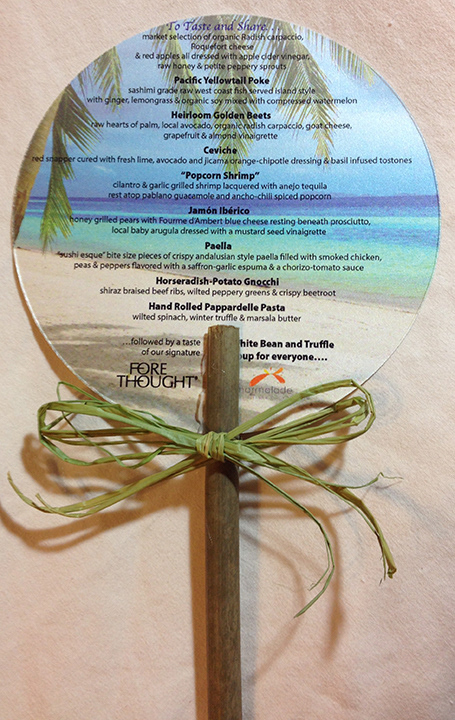 To Taste and Share....
market selection of organic Radish carpaccio,
Roquefort cheese
& red apples all dressed with apple cider vinegar,
raw honey & petite peppery sprouts
Pacific Yellowtail Poke
sashimi grade raw west coast fish served island style
with ginger, lemongrass & organic soy mixed with compressed watermelon
Heirloom Golden Beets
raw hearts of palm, local avocado, organic radish carpaccio, goat cheese,
grapefruit & almond vinaigrette
Ceviche
red snapper cured with fresh lime, avocado and jicama orange-chipotle dressing & basil infused tostones
"Popcorn Shrimp"
cilantro & garlic grilled shrimp lacquered with anejo tequila
rest atop pablano guacamole and ancho-chili spiced popcorn
Jamón Ibérico
honey grilled pears with Fourme d'Ambert blue cheese resting beneath prosciutto,
local baby arugula dressed with a mustard seed vinaigrette
Paella
"sushi esque" bite size pieces of crispy andalusian style paella filled with smoked chicken,
peas & peppers flavored with a saffron-garlic espuma & a chorizo-tomato sauce
Horseradish-Potato Gnocchi
shiraz braised beef ribs, wilted peppery greens & crispy beetroot
Hand Rolled Pappardelle Pasta
wilted spinach, winter truffle & marsala butter
...followed by a taste
of our signature
hite Bean and Truffle
oup for everyone....
FORE
THOUGHT
marmalade